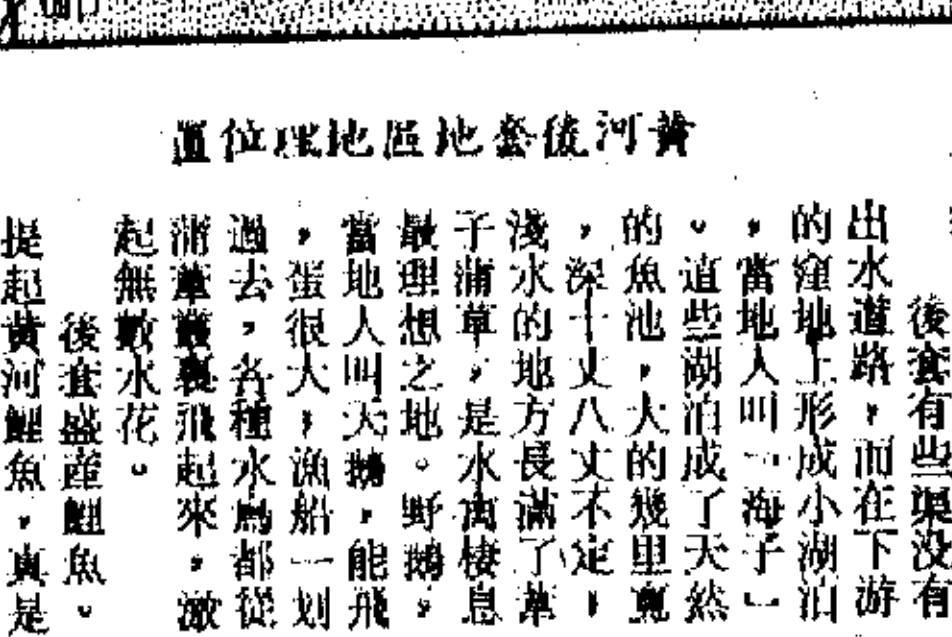 黃河後套地區地理位置
後套有些渠沒有
出水道路，而在下游
的窪地上形成小湖泊
，當地人叫「海子」
。這些湖泊成了天然
的魚池，大的幾里寬
，深十丈八丈不定，
淺水的地方長滿了葦
子蒲草，是水禽棲息
最理想之地。野鵝，
當地人叫天鵝，能飛
，蛋很大，漁船一划
過去，各種水鳥都從
蒲葦叢裏飛起來，激
起無數水花。
後套盛產鯉魚。
提起黃河鯉魚，真是